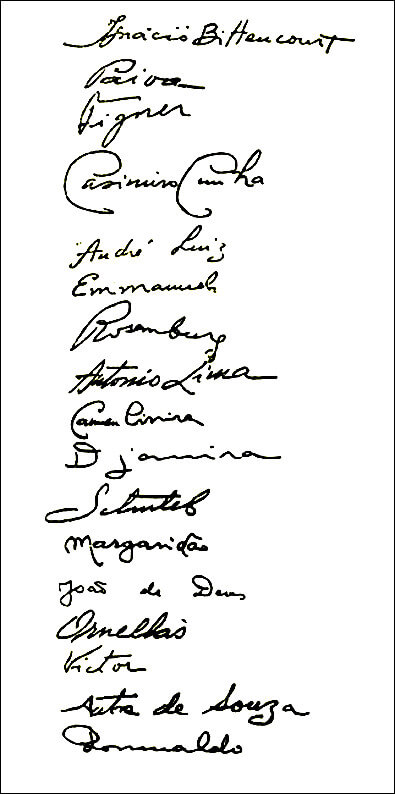 Ignácio Bittencourt
Paiva
Figner
Casimiro Cunha
André Luiz
Emmanuel
Rosemburg
Antonio Lima
Carmen Cinira
Djanira
Schutel
Margaridão
João de Deus
Ornellas
Victor
Auta de Souza
Romualdo